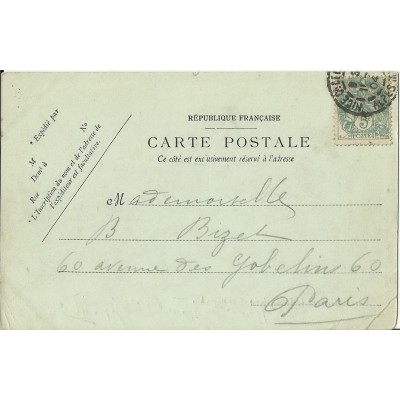 RÉPUBLIQUE FRANÇAISE
CARTE POSTALE
Ce côté est exclusivement réservé à l'adresse
* Expédié par
M
Demt à
Rue
No
* L'Inscription du nom et de l'adresse de
l'expéditeur est facultative.
Mademoiselle
B Bizet
60 avenue des Gobelins 60
Paris
5